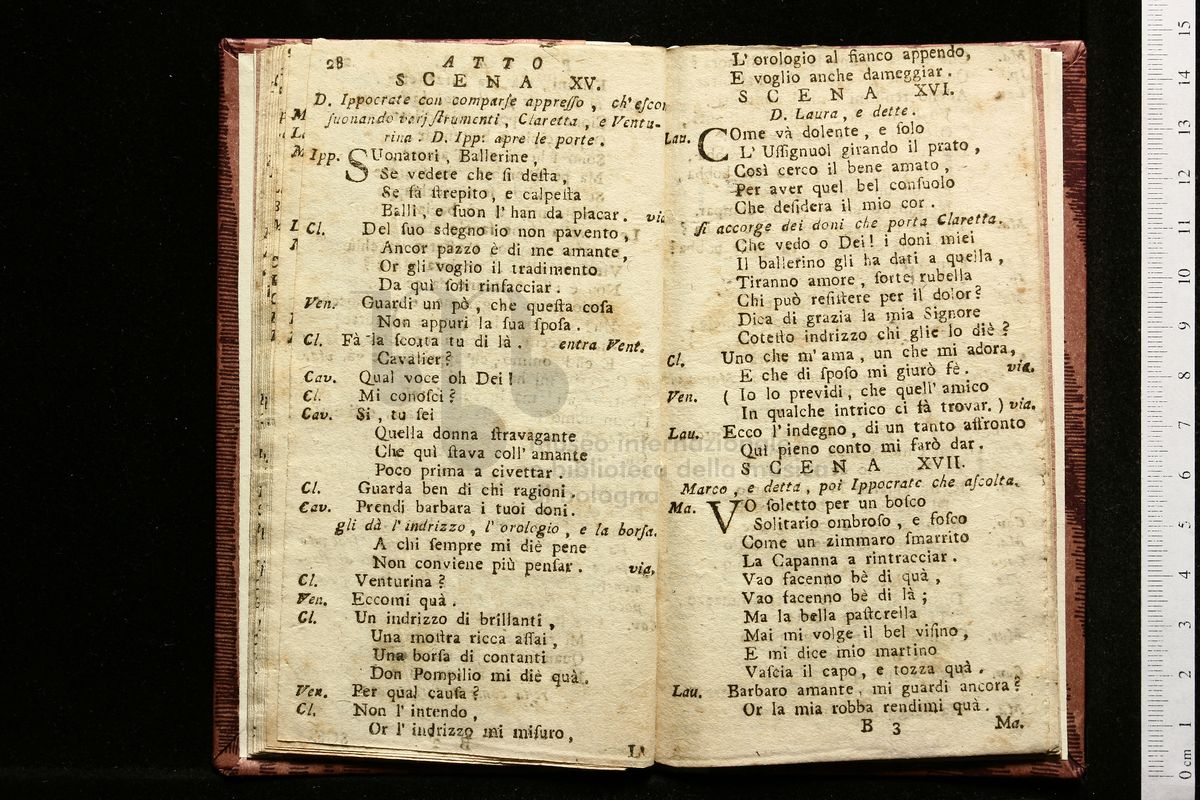 28 ATTO
SCENA XV.
D. Ippocrate con comparſe appreſſo, ch'eſcon
ſuonando verj ſtrumenti, Claretta, e Ventu-
rina: D. Ipp: apre le porte.
Ipp. SUonatori, Ballerine,
Se vedete che ſi deſta,
Se fà ſtrepito, e calpeſta
Balli, e ſuon l'han da placar. via
Cl. Del ſuo sdegno io non pavento,
Ancor pazzo è di me amante,
Or gli voglio il tradimento
Da quì ſoli rinfacciar.
Ven. Guardi un pò, che queſta coſa
Non appuri la ſua ſpoſa.
Cl. Fà la ſcorta tu di là. entra Vent.
Cavalier?
Cav. Qual voce oh Dei!
Cl. Mi conoſci?
Cav. Si, tu ſei
Quella donna ſtravagante
Che quì ſtava coll'amante
Poco prima a civettar.
Cl. Guarda ben di chi ragioni.
Cav. Prendi barbara i tuoi doni.
gli dà l'indrizzo, l'orologio, e la borſa.
A chi ſempre mi diè pene
Non conviene più penſar. via.
Cl. Venturina?
Ven. Eccomi quà.
Cl. Un indrizzo di brillanti,
Una moſtra ricca aſſai,
Una borſa di contanti
Don Pompilio mi diè quà.
Ven. Per qual cauſa?
Cl. Non l'intendo,
Or l'indrizzo mi miſuro,
L'
L'orologio al fianco appendo,
E voglio anche dameggiar.
SCENA XVI.
D. Laura, e dette.
Lau. COme và dolente, e ſolo
L'Uſſignuol girando il prato,
Così cerco il bene amato,
Per aver quel bel conſuolo
Che deſidera il mio cor.
ſi accorge dei doni che porta Claretta.
Che vedo o Dei! i doni miei
Il ballerino gli ha dati a quella,
Tiranno amore, ſorte rubella
Chi può reſiſtere per il dolor?
Dica di grazia la mia Signore
Coteſto indrizzo chi glie lo diè?
Cl. Uno che m'ama, un che mi adora,
E che di ſpoſo mi giurò fè. via.
Ven. (Io lo previdi, che quell'amico
In qualche intrico ci fà trovar.) via.
Lau. Ecco l'indegno, di un tanto affronto
Quì pieno conto mi farò dar.
SCENA XVII.
Marco, e detta, poi Ippocrate che aſcolta.
Ma. VO ſoletto per un boſco
Solitario ombroſo, e foſco
Come un zimmaro ſmarrito
La Capanna a rintracciar.
Vao facenno bè di quà,
Vao facenno bè di là;
Ma la bella paſtorella
Mai mi volge il bel viſino,
E mi dice mio martino
Vaſcia il capo, e tozza quà.
Lau. Barbaro amante, mi guardi ancora?
Or la mia robba rendimi quà.
B 3 Ma.
museo internazionale
biblioteca della musica
bologna
0 cm 1 2 3 4 5 6 7 8 9 10 11 12 13 14 15